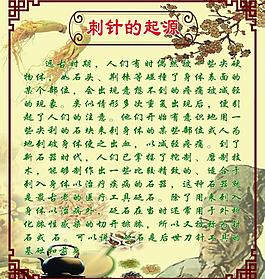 刺针的起源
远古时期，人们有时偶然被一些尖硬
物体，如石头、荆棘等碰撞了身体表面的
某个部位，会出现意想不到的疼痛被减轻
的现象。类似情形多次重复出现后，便引
起了人们的注意。他们开始有意识地用一
些尖利的石块来刺身体的某些部位或人为
地刺破身体使之出血，以减轻疼痛。到了
新石器时代，人们已掌握了挖制、磨制技
术，能够制作出一些比较精致的、适合于
刺入身体以治疗疾病的石器，这种石器就
是最古老的医疗工具砭石。除了用来刺入
人体治疗疾病，砭石在当时还常用于外科
化脓性感染的切开排脓，所以又被称为针
石或石。可以说，砭石是后世刀针工具的
基础和前身